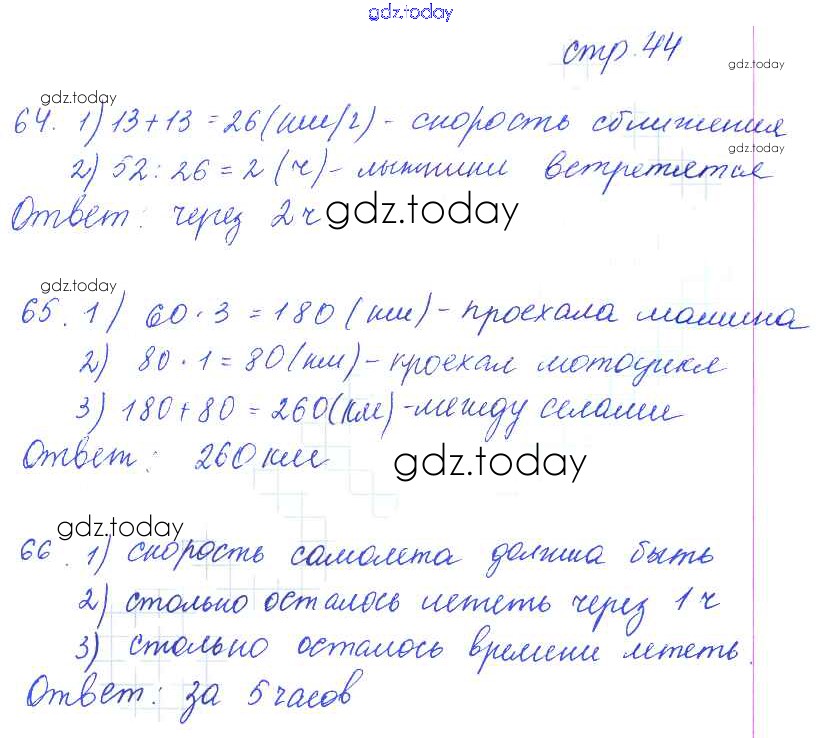 gdz.today
стр. 44
gdz.today
gdz.today
64. 1) 13 + 13 = 26 (км/ч) - скорость сближения
gdz.today
2) 52 : 26 = 2 (ч) - лыжники встретятся
Ответ: через 2 ч
gdz.today
gdz.today
65. 1) 60 · 3 = 180 (км) - проехала машина
2) 80 · 1 = 80 (км) - проехал мотоцикл
3) 180 + 80 = 260 (км) - между селами
Ответ: 260 км
gdz.today
gdz.today
66. 1) скорость самолета должна быть
2) столько осталось лететь через 1 ч
3) столько осталось времени лететь
Ответ: за 5 часов